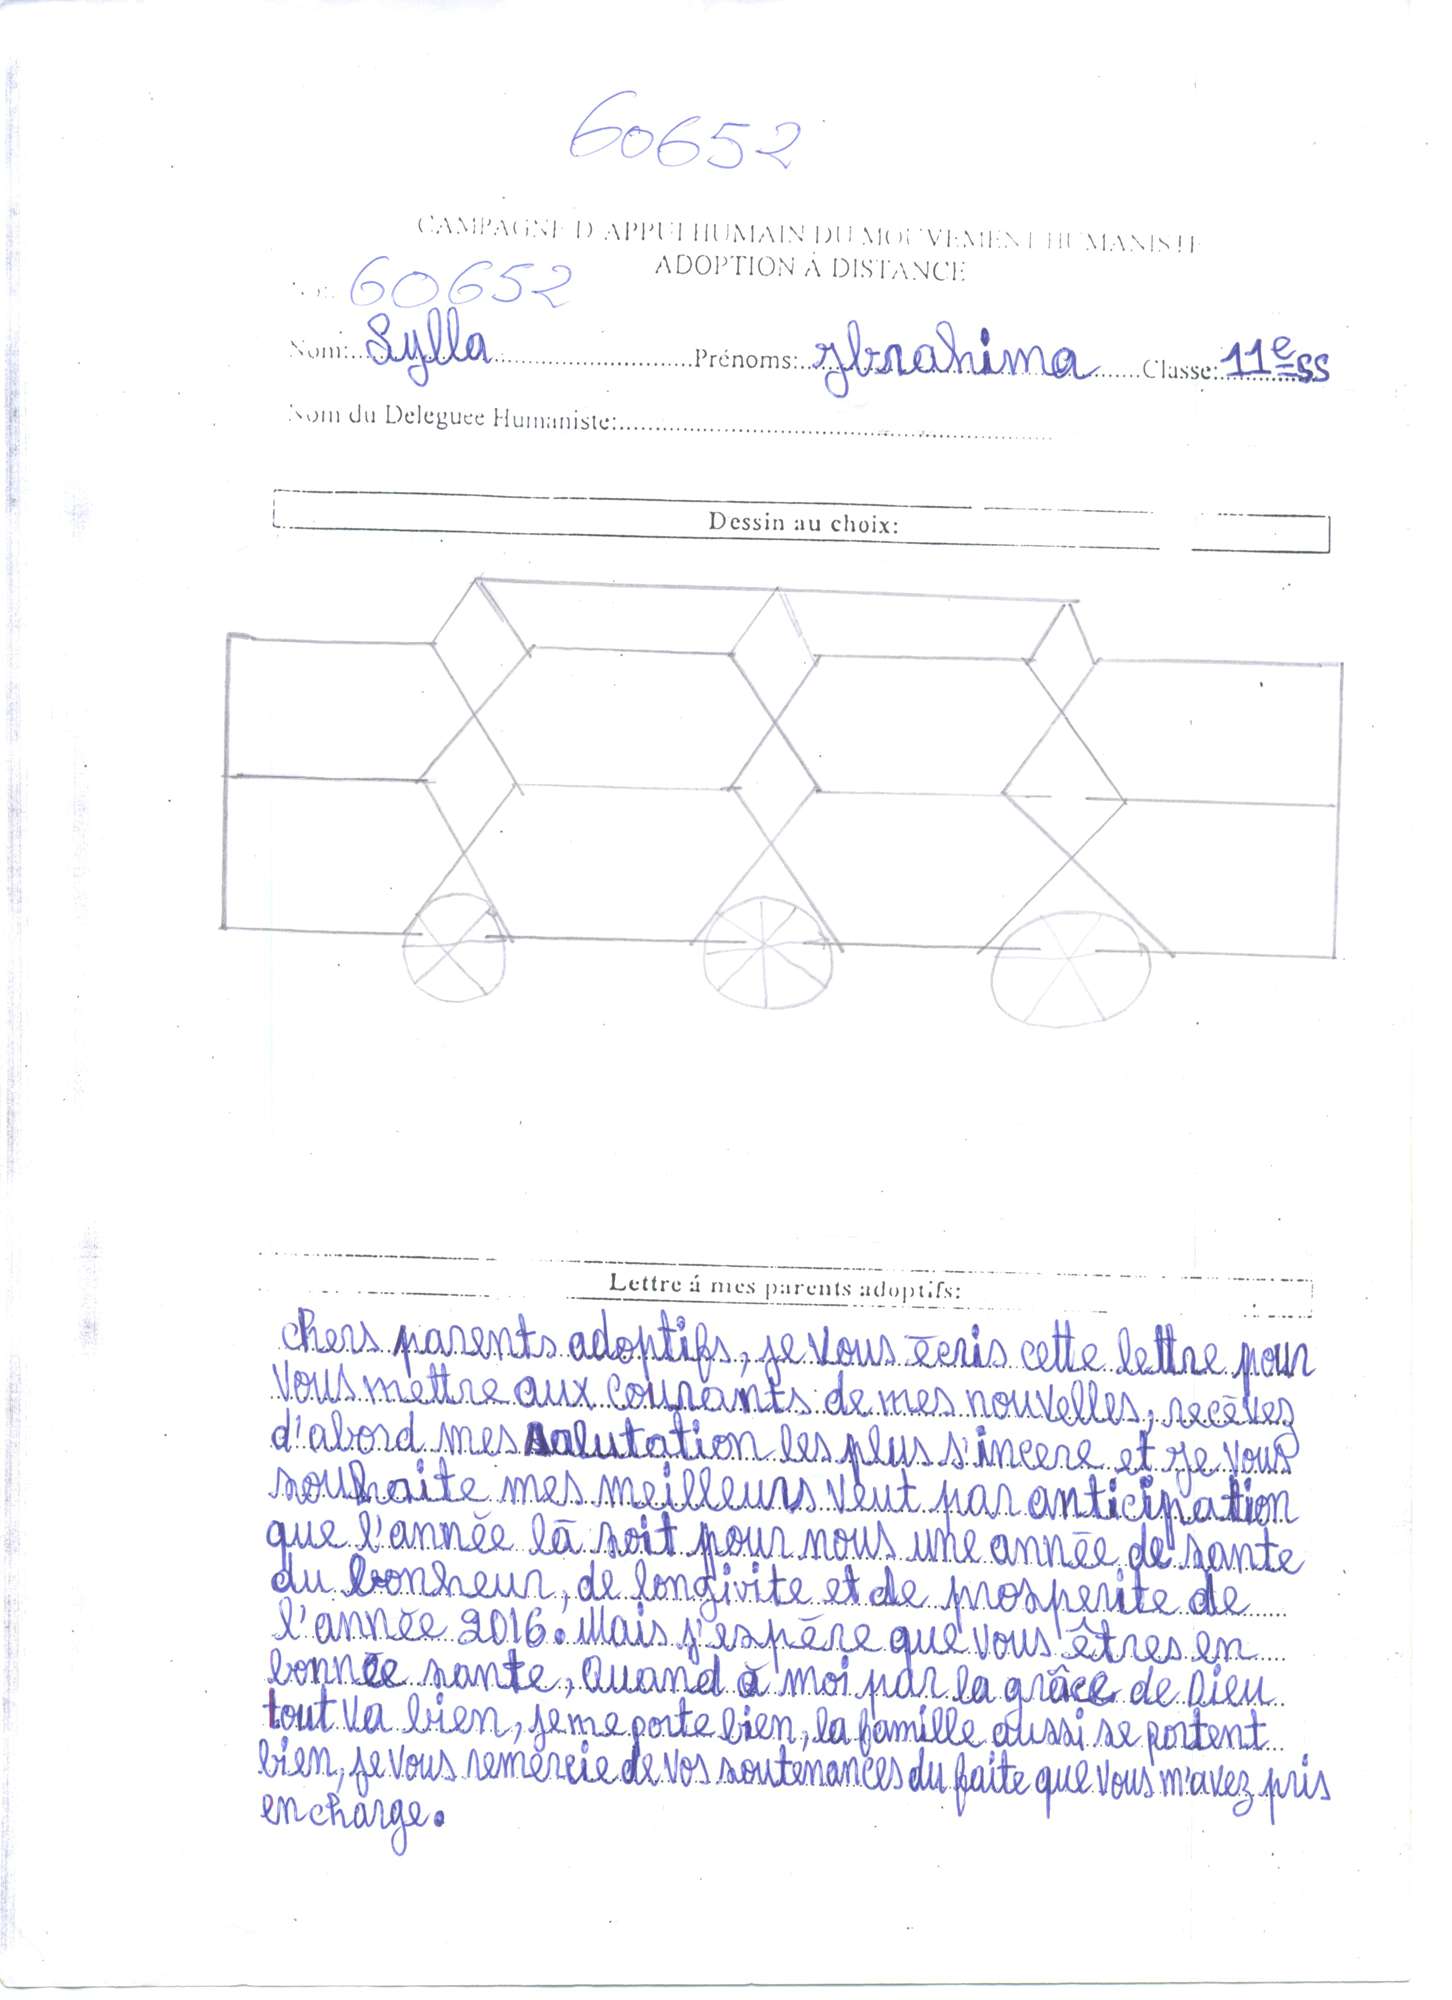 60652
CAMPAGNE D'APPUI HUMAIN DU MOUVEMENT HUMANISTE
ADOPTION Á DISTANCE
60652
Nom: Sylla Prénoms: Ibrahima Classe: 11e ss
Nom du Deleguee Humaniste:
Dessin au choix:
Lettre á mes parents adoptifs:
chers parents adoptifs, je vous ècris cette lettre pour
vous mettre aux courants de mes nouvelles, recèvez
d'abord mes salutation les plus s'incere et je vous
souhaite mes meilleurs veut par anticipation
que l'annèe là soit pour nous une annèe de sante
du bonheur, de longivite et de prosperite de
l'annèe 2016. Mais j'espère que vous êtres en
bonnèe sante, Quand à moi par la grâce de Dieu
tout va bien, je me porte bien, la famille aussi se portent
bien, je vous remercie de vos soutenances du faite que vous m'avez pris
en charge.